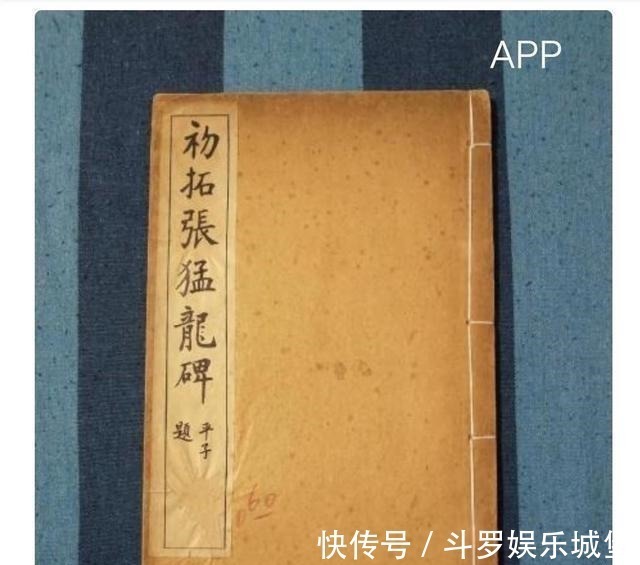 APP
初拓張猛龍碑
平子
題
60
快传号 / 斗罗娱乐城堡